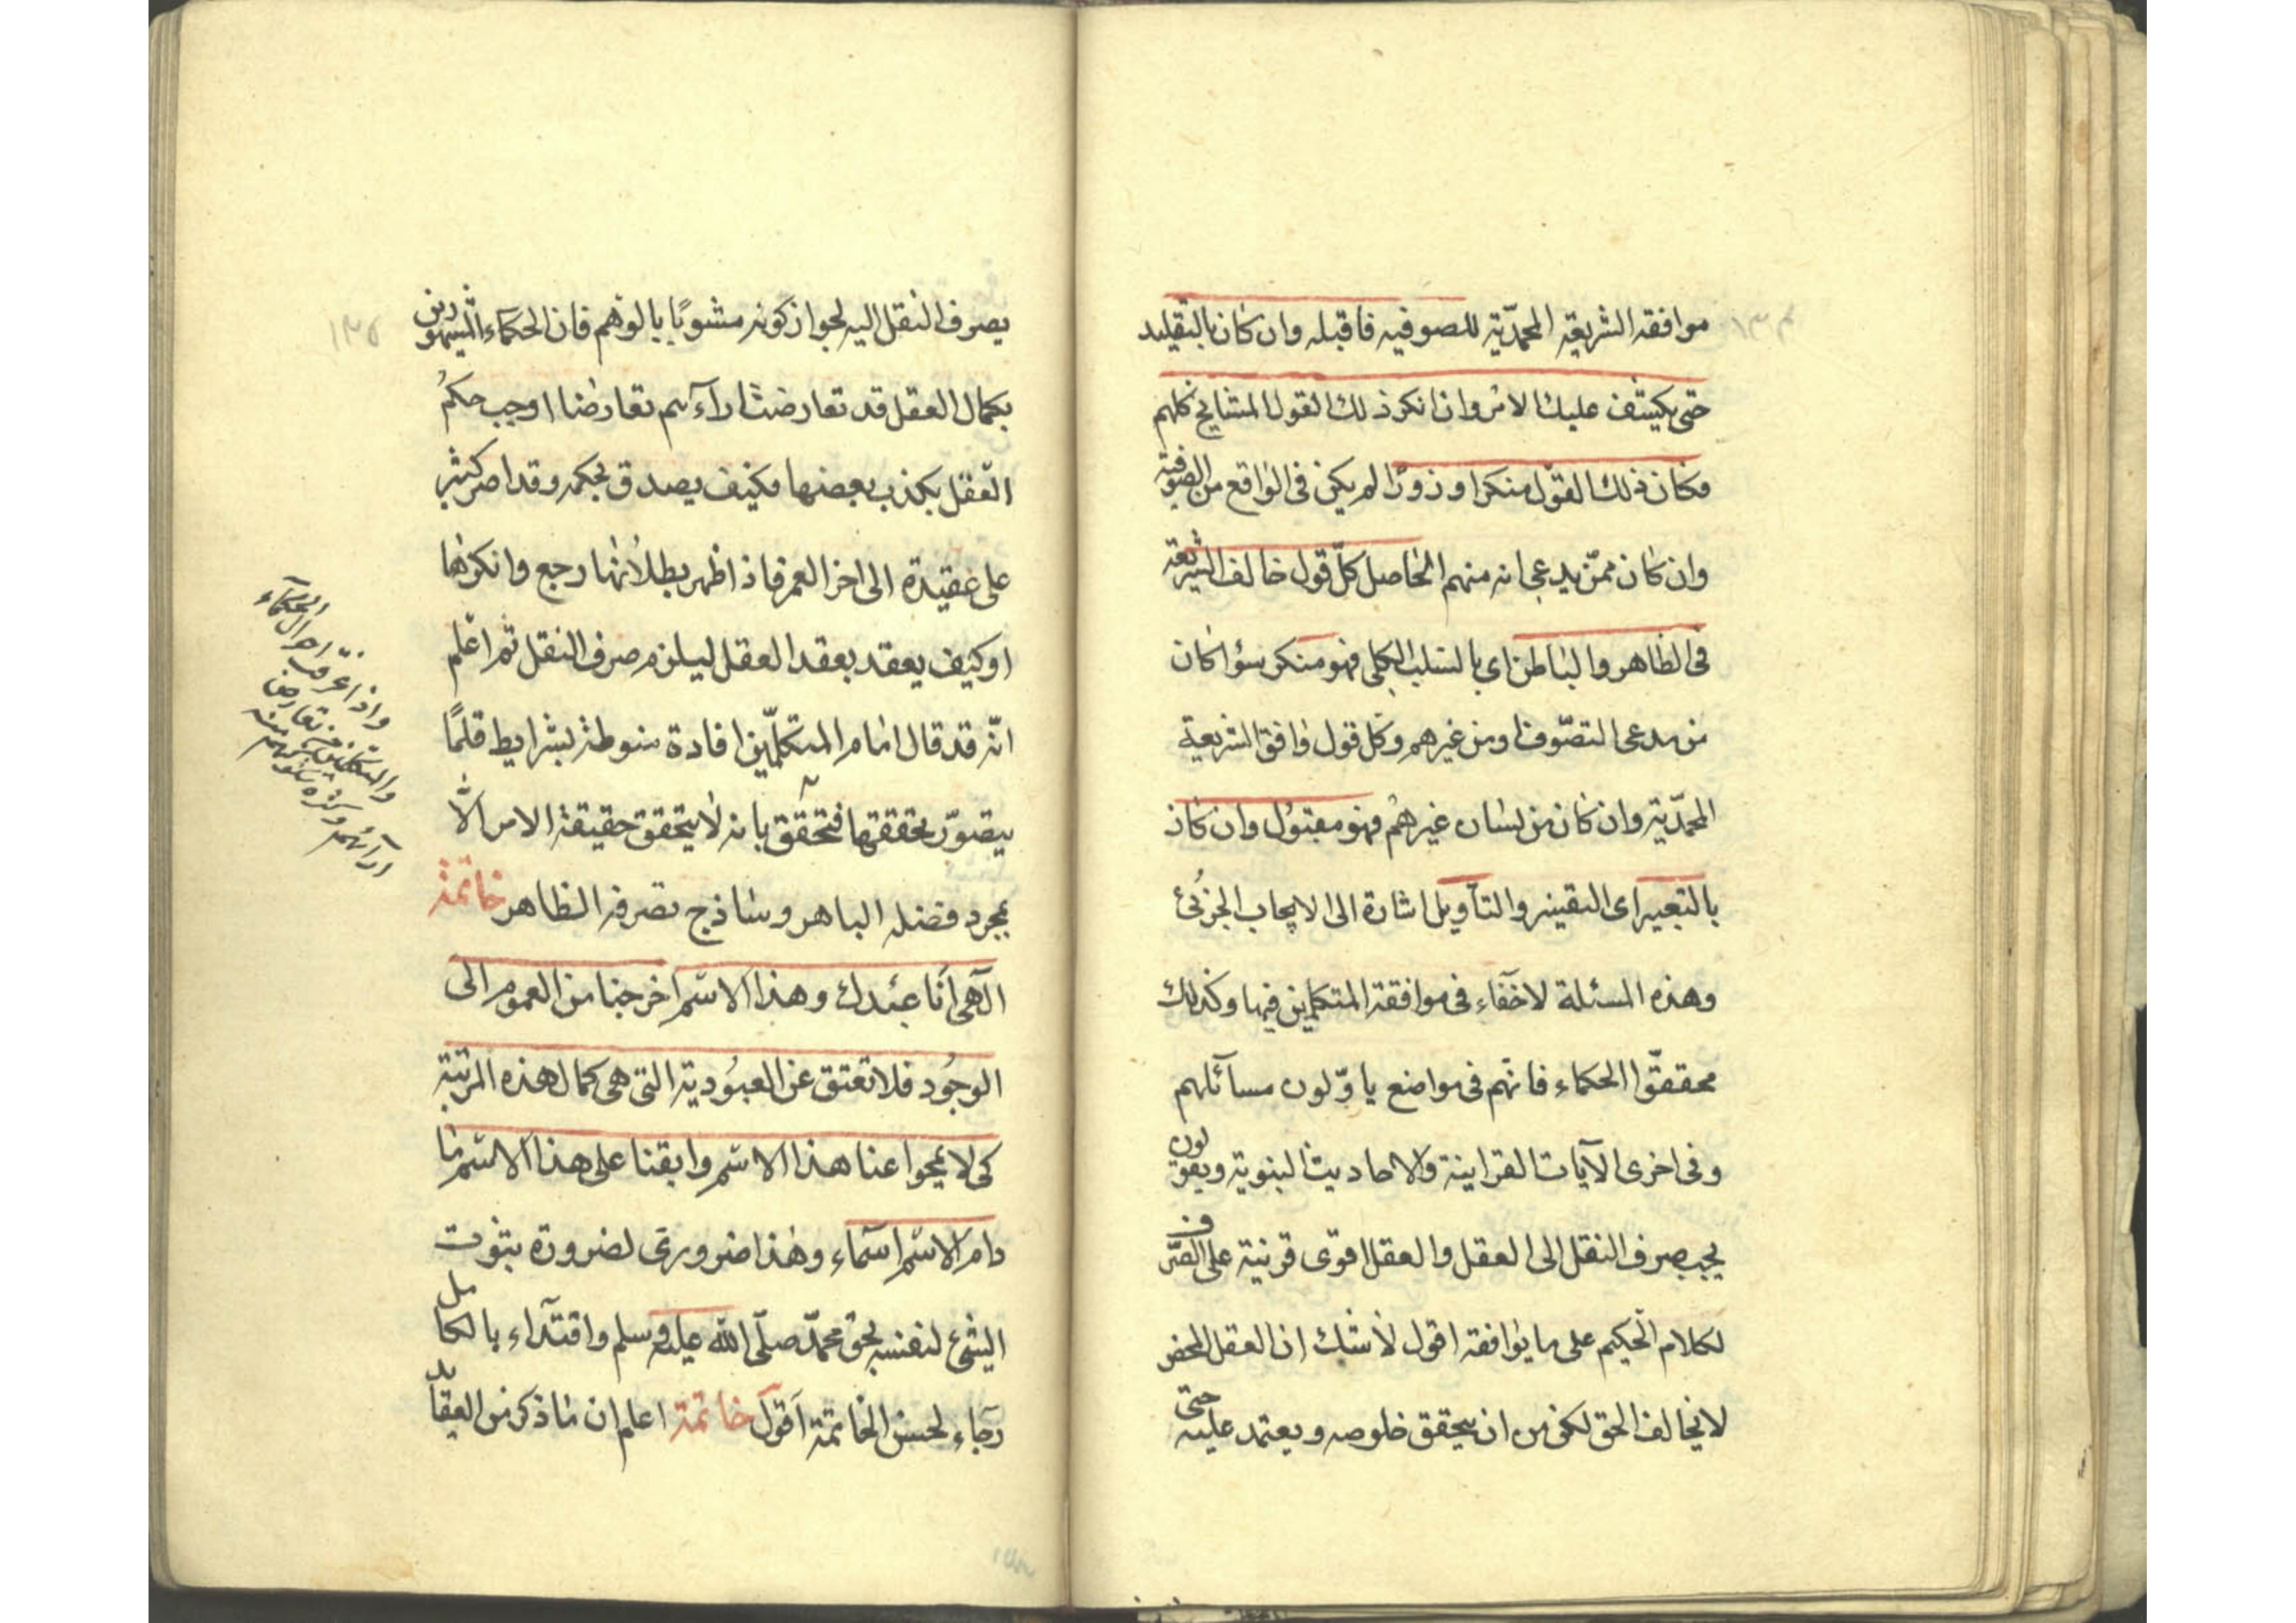 ١٣٤
موافقه الشريعة المحمّدية للصوفيه فاقبله وان كان بالتقليد
حتى يكشف عليك الامر وان انكر ذلك القول المشايخ كلهم
فكان ذلك القول منكرا وزورًا لم يكن فى الواقع من الصوفية
وان كان ممّن يدعى انه منهم الحاصل كلّ قول خالف الشريعة
فى الظاهر والباطن اى بالسلب الكلى فهو منكر سؤا كان
من مدعى التصّوف او من غيرهم وكل قول وافق الشريعة
المحمّدية وان كان من لسان غيرهم فهو مقبول وان كان
بالتعبير اى التفسير والتأويل اشارة الى الايجاب الجزئى
وهذه المسئلة لاخفاء فى موافقة المتكلمين فيها وكذلك
محققوّا الحكماء فانهم فى مواضع ياوّلون مسائلهم
وفى اخرى الآيات القرانية والاحاديث النبوية ويقولون
يجب صرف النقل الى العقل والعقل اقوى قرينة على الصّرف
لكلام الحكيم على ما يوافقه اقول لاشك ان العقل المحض
لايخالف الحق لكن من اين يتحقق خلوصه ويعتمد عليه حتى
١٣٥
يصرف النقل اليه لجواز كونه مشوبًا بالوهم فان الحكماء المشهورين
بكمال العقل قد تعارضت اراءهم تعارضا اوجب حكم
العقل بكذب بعضها فكيف يصدق بحكمه وقد اصر كثير
على عقيدة الى اخر العمر فاذ اظهر بطلانها رجع وانكرها
اوكيف يعقد بعقد العقل ليلزم صرف النقل ثم اعلم
انّه قد قال امام المتكلّمين افادة منوطة بشرايط قلمّا
يتصوّر تحققها فتحقق بانه لايتحقق حقيقة الامر الّا
بمجرد فضله الباهر وساذج تصرفه الظاهر خاتمة
الهى انا عبدك وهذا الاسم اخرجنا من العموم الى
الوجود فلا تعتق عن العبودية التى هى كمال هذه المرتبة
كى لايمحوا عنا هذا الاسم وابقنا على هذا الاسم ما
دام الاسم اسماء وهذا ضرورى لضرورة ثبوت
الشئ لنفسه بحق محمّد صلّى الله عليه وسلم واقتداء بالكامل
رجاء لحسن الخاتمة اقول خاتمة اعلم ان ماذكر من العقايد
واذا عرفت احوال الحكماء
والمتكلمين من تعارض
ارائهم وكثرة